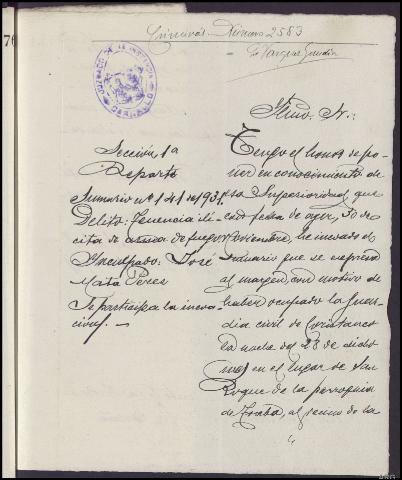 76
Criminal. Número 2583
JUZGADO DE INSTRUCCION
CARBALLO
Ilmo. Sr.:
Sección 1ª
Reparto
Sumario nº 141 de 1931.
Delito: Tenencia ilí-
cita de arma de fuego
Inculpado: José
Mata Pérez
Se participa la incoa-
ción. —
Tengo el honor de po-
ner en conocimiento de
esa Superioridad que
con fecha de ayer, 30 de
Noviembre, he incoado el
sumario que se expresa
al margen, con motivo de
haber ocupado la Guar-
dia civil de Coristanco
la noche del 28 de dicho
mes en el lugar de San
Roque de la parroquia
de, al vecino de la